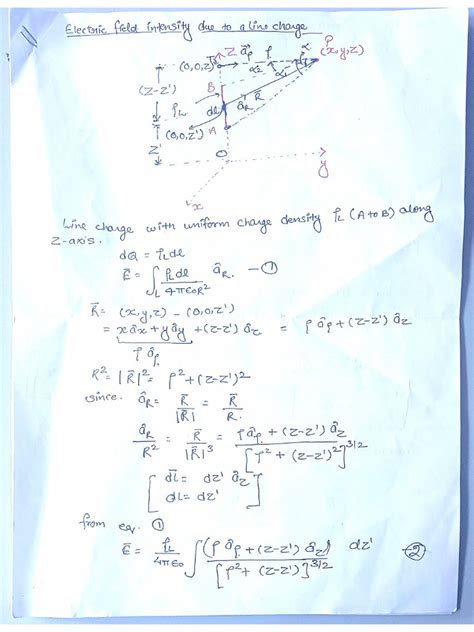 Electric field intensity due to a line charge
Z
â_ρ
ρ
α
P
(x,y,z)
(0,0,z)
α₂
α₁
B
(z-z')
ρ_L
dl
â_R
R
(0,0,z')
A
z'
O
y
x
Line charge with uniform charge density ρ_L (A to B) along
Z-axis.
dQ = ρ_L dl
Ē = ∫_L ρ_L dl / 4πε₀R² â_R. — ①
R̄ = (x,y,z) - (0,0,z')
= xâx + yây + (z-z') âz = ρ âρ + (z-z') âz
ρ âρ
R² = |R̄|² = ρ² + (z-z')²
since. âR = R̄/|R̄| = R̄/R.
âR/R² = R̄/|R̄|³ = ρâρ + (z-z') âz / [ρ² + (z-z')²]^3/2
[ dl̄ = dz' âz
dl = dz' ]
from eq. ①
Ē = ρ_L/4πε₀ ∫ (ρ âρ + (z-z') âz) / [ρ² + (z-z')]^3/2 dz' — ②